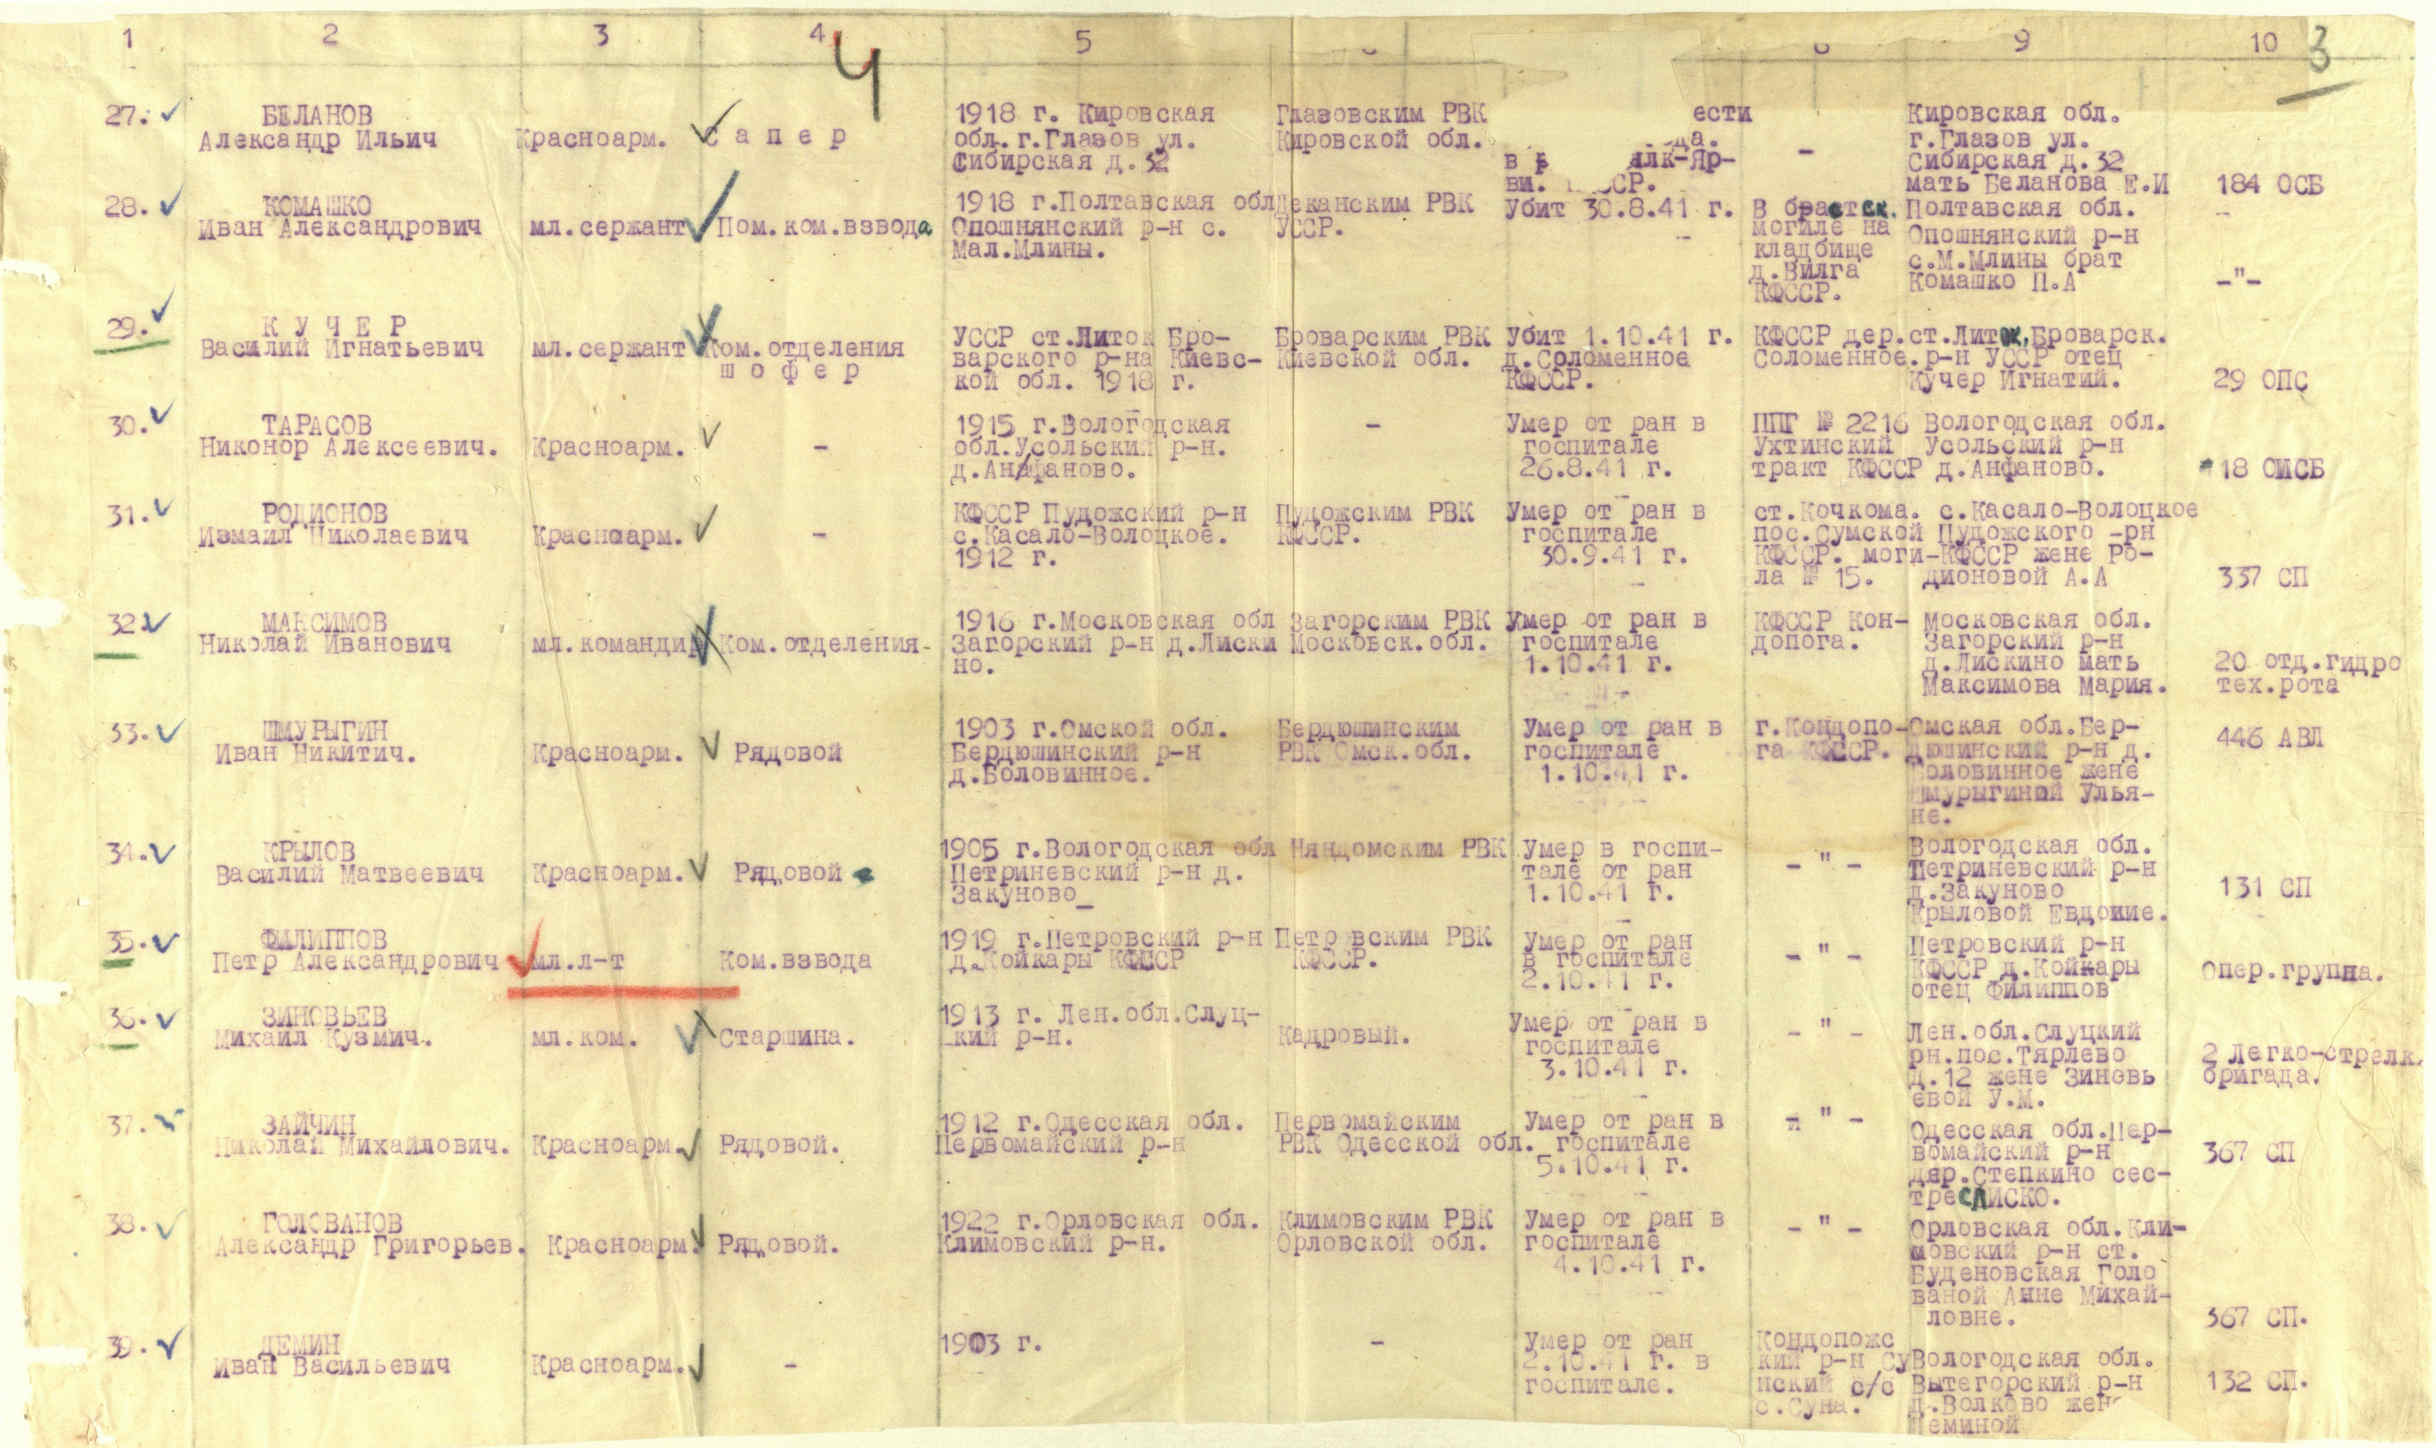 1 2 3 4 5 9 10
4
3
27. БЕЛАНОВ
Александр Ильич Красноарм. сапер
1918 г. Кировская
обл. г.Глазов ул.
Сибирская д.32
Глазовским РВК
Кировской обл.
ести
да.
в
ялк-Яр-
ви. ССР.
-
Кировская обл.
г.Глазов ул.
Сибирская д.32
мать Беланова Е.И
184 ОСБ
28. КОМАШКО
Иван Александрович мл.сержант Пом.ком.взвода
1918 г.Полтавская обл
Опошнянский р-н с.
Мал.Млины.
Деканским РВК
УССР.
Убит 30.8.41 г.
В братск.
могиле на
кладбище
д.Вилга
КФССР.
Полтавская обл.
Опошнянский р-н
с.М.Млины брат
Комашко П.А
-"-
29. КУЧЕР
Василий Игнатьевич мл.сержант Ком.отделения
шофер
УССР ст.Литок Бро-
варского р-на Киевс-
кой обл. 1918 г.
Броварским РВК
Киевской обл.
Убит 1.10.41 г.
д.Соломенное
КФССР.
КФССР дер.
Соломенное.
ст.Литок,Броварск.
р-н УССР отец
Кучер Игнатий.
29 ОПС
30. ТАРАСОВ
Никонор Алексеевич. Красноарм. -
1915 г.Вологодская
обл.Усольский р-н.
д.Анфаново.
-
Умер от ран в
госпитале
26.8.41 г.
ППГ № 2216
Ухтинский
тракт КФССР
Вологодская обл.
Усольский р-н
д.Анфаново.
18 ОИСБ
31. РОДИОНОВ
Измаил Николаевич Красноарм. -
КФССР Пудожский р-н
с.Касало-Волоцкое.
1912 г.
Пудожским РВК
КФССР.
Умер от ран в
госпитале
30.9.41 г.
ст.Кочкома.
пос.Сумской
КФССР. моги-
ла № 15.
с.Касало-Волоцкое
Пудожского -рн
КФССР жене Ро-
дионовой А.А
337 СП
32. МАКСИМОВ
Николай Иванович мл.командир Ком.отделения-
1916 г.Московская обл
Загорский р-н д.Лиски
но.
Загорским РВК
Московск.обл.
Умер от ран в
госпитале
1.10.41 г.
КФССР Кон-
допога.
Московская обл.
Загорский р-н
д.Лискино мать
Максимова Мария.
20 отд.гидро
тех.рота
33. ШМУРЫГИН
Иван Никитич. Красноарм. Рядовой
1903 г.Омской обл.
Бердюшинский р-н
д.Боловинное.
Бердюшинским
РВК Омск.обл.
Умер от ран в
госпитале
1.10.41 г.
г.Кондопо-
га КФССР.
Омская обл.Бер-
дюшинский р-н д.
Боловинное жене
Шмурыгиной Улья-
не.
446 АВЛ
34. КРЫЛОВ
Василий Матвеевич Красноарм. Рядовой
1905 г.Вологодская обл
Петриневский р-н д.
Закуново_
Няндомским РВК
Умер в госпи-
тале от ран
1.10.41 г.
-"-
Вологодская обл.
Петриневский р-н
д.Закуново
Крыловой Евдокие.
131 СП
35. ФИЛИППОВ
Петр Александрович мл.л-т Ком.взвода
1919 г.Петровский р-н
д.Койкары КФССР
Петровским РВК
КФССР.
Умер от ран
в госпитале
2.10.41 г.
-"-
Петровский р-н
КФССР д.Койкары
отец Филиппов
Опер.группа.
36. ЗИНОВЬЕВ
Михаил Кузмич. мл.ком. Старшина.
1913 г. Лен.обл.Слуц-
кий р-н.
Кадровый.
Умер от ран в
госпитале
3.10.41 г.
-"-
Лен.обл.Слуцкий
рн.пос.Тярлево
д.12 жене Зиновь
евой У.М.
2 Легко-стрелк.
бригада.
37. ЗАЙЧИН
Николай Михайлович. Красноарм. Рядовой.
1912 г.Одесская обл.
Первомайский р-н
Первомайским
РВК Одесской обл.
Умер от ран в
госпитале
5.10.41 г.
-"-
Одесская обл.Пер-
вомайский р-н
дяр.Степкино сес-
тре СЛИСКО.
367 СП
38. ГОЛОВАНОВ
Александр Григорьев. Красноарм. Рядовой.
1922 г.Орловская обл.
Климовский р-н.
Климовским РВК
Орловской обл.
Умер от ран в
госпитале
4.10.41 г.
-"-
Орловская обл.Кли-
мовский р-н ст.
Буденовская Голо
вановой Анне Михай-
ловне.
367 СП.
39. ДЕМИН
Иван Васильевич Красноарм. -
1903 г.
-
Умер от ран
2.10.41 г. в
госпитале.
Кондопожс
кий р-н Су
нский с/с
с.Суна.
Вологодская обл.
Вытегорский р-н
д.Волково жене
Деминой
132 СП.